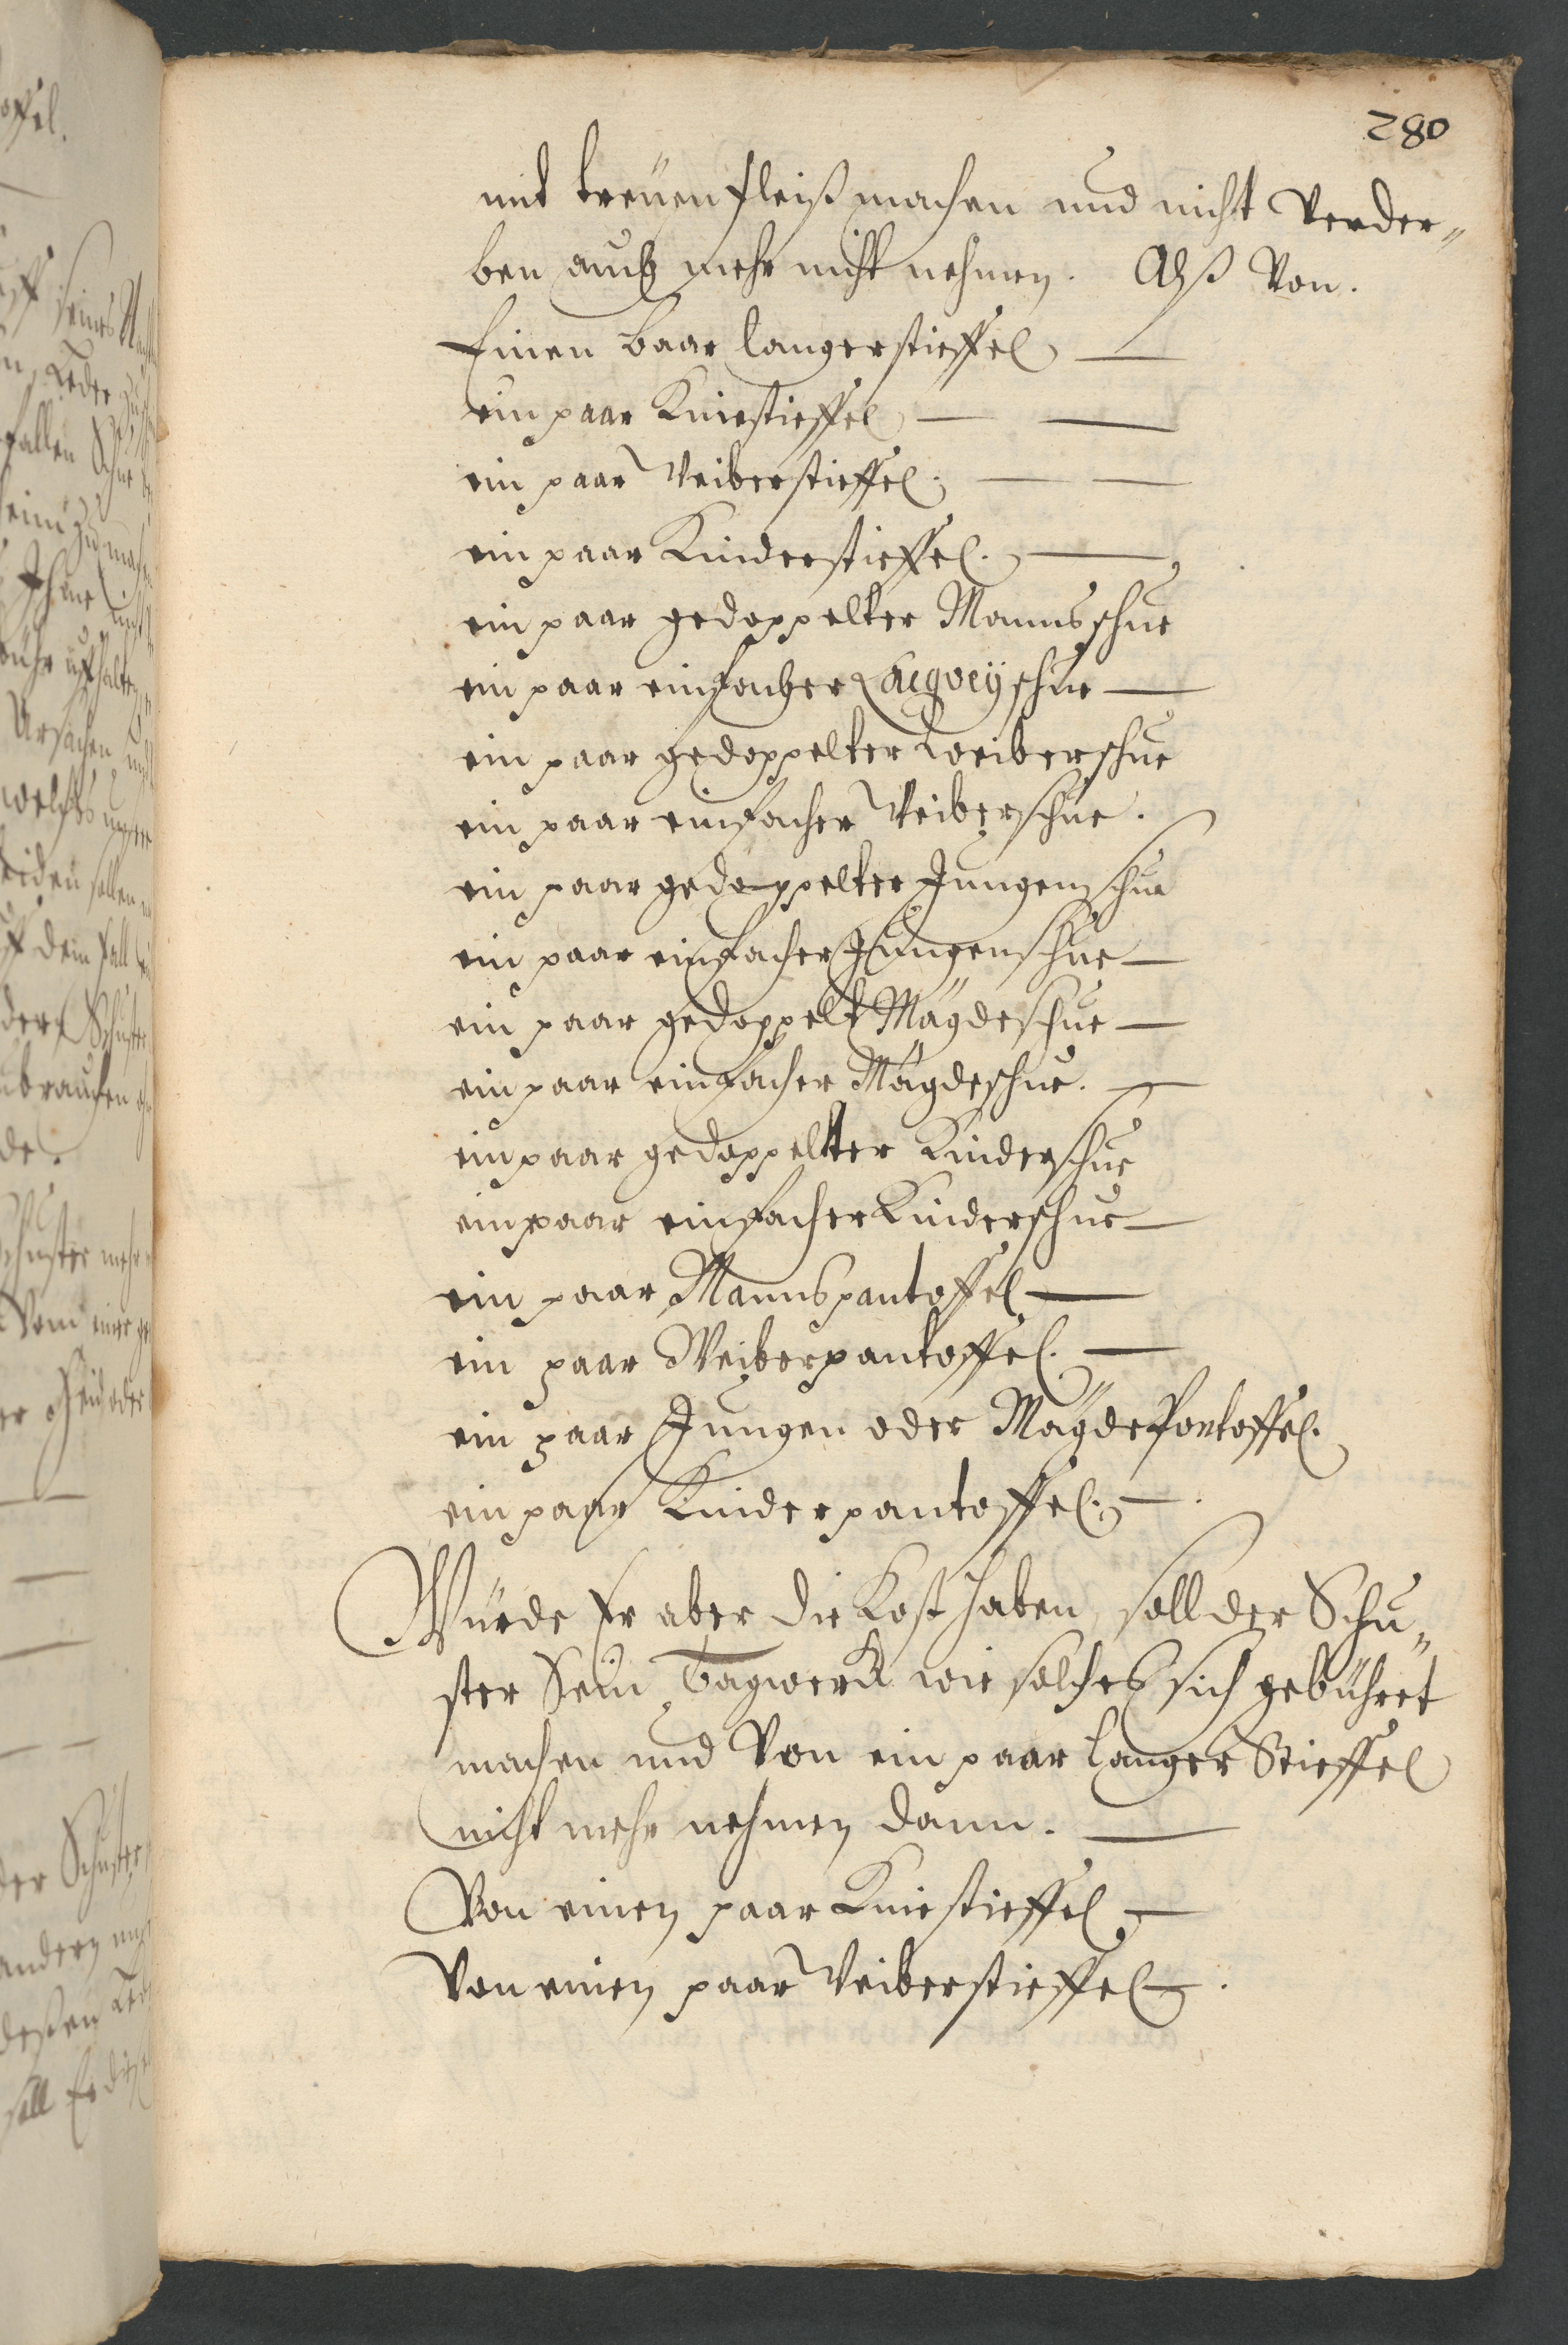 280
mit treüen fleiß machen und nicht Verder„
ben auch mehr nicht nehmen. Alß Von.
Einen baar langerstieffel —
ein paar Kniestieffel — —
ein paar Veiberstieffel. — —
ein paar Kinderstieffel. —
ein paar gedoppelter Mannsschue
ein paar einfacher Lacqveÿschue —
ein paar gedoppelter weiberschue
ein paar einfacher Veiberschue.
ein paar gedoppelter Jungenschue
ein paar einfacher Jungenschue —
ein paar gedoppelt Mägdeschue —
ein paar einfacher Mägdeschue. —
ein paar gedoppelter Kinderschue
ein paar einfacher Kinderschue —
ein paar Mannspantoffel —
ein paar Weiberpantoffel. —
ein paar Jungen oder Mägde Pantoffel.
ein paar Kinderpantoffel. —
Würde Er aber die Kost haben, soll der Schu„
ster Sein Tagwerck wie solches sich gebühret
machen und Von ein paar langer Stieffel
nicht mehr nehmen dann. —
Von einen paar Kniestieffel —
Von einen paar Veiberstieffel —.